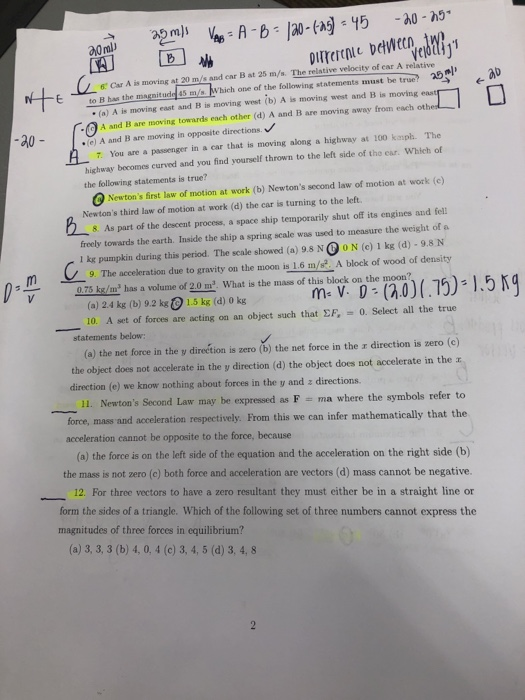 20m/s 25 m/s V_AB = A - B = |20 - (-25)| = 45 -20 - 25
A B Difference between two velocity's
N + E
C 6. Car A is moving at 20 m/s and car B at 25 m/s. The relative velocity of car A relative
to B has the magnitude 45 m/s. Which one of the following statements must be true? 25m/s ← 20
(a) A is moving east and B is moving west (b) A is moving west and B is moving east
-20 -
(c) A and B are moving towards each other (d) A and B are moving away from each other
(e) A and B are moving in opposite directions. ✓
A 7. You are a passenger in a car that is moving along a highway at 100 kmph. The
highway becomes curved and you find yourself thrown to the left side of the car. Which of
the following statements is true?
(a) Newton's first law of motion at work (b) Newton's second law of motion at work (c)
Newton's third law of motion at work (d) the car is turning to the left.
B 8. As part of the descent process, a space ship temporarily shut off its engines and fell
freely towards the earth. Inside the ship a spring scale was used to measure the weight of a
1 kg pumpkin during this period. The scale showed (a) 9.8 N (b) 0 N (c) 1 kg (d) - 9.8 N
C 9. The acceleration due to gravity on the moon is 1.6 m/s². A block of wood of density
D = m/v
0.75 kg/m³ has a volume of 2.0 m³. What is the mass of this block on the moon?
(a) 2.4 kg (b) 9.2 kg (c) 1.5 kg (d) 0 kg m = V · D = (2.0)(.75) = 1.5 kg
10. A set of forces are acting on an object such that ΣFₓ = 0. Select all the true
statements below:
(a) the net force in the y direction is zero (b) the net force in the x direction is zero (c)
the object does not accelerate in the y direction (d) the object does not accelerate in the x
direction (e) we know nothing about forces in the y and z directions.
11. Newton's Second Law may be expressed as F = ma where the symbols refer to
force, mass and acceleration respectively. From this we can infer mathematically that the
acceleration cannot be opposite to the force, because
(a) the force is on the left side of the equation and the acceleration on the right side (b)
the mass is not zero (c) both force and acceleration are vectors (d) mass cannot be negative.
12. For three vectors to have a zero resultant they must either be in a straight line or
form the sides of a triangle. Which of the following set of three numbers cannot express the
magnitudes of three forces in equilibrium?
(a) 3, 3, 3 (b) 4, 0, 4 (c) 3, 4, 5 (d) 3, 4, 8
2